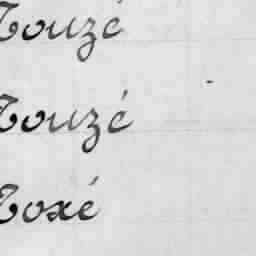 Touzé
Touzé
Toxé